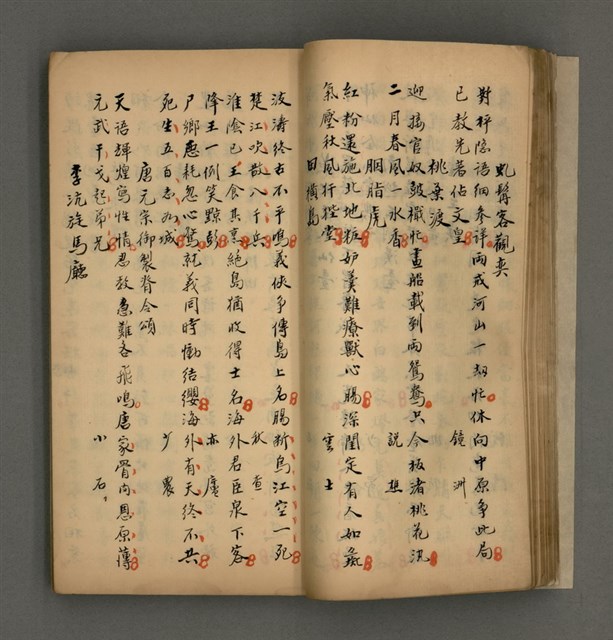 虬髯客觀奕
對枰隱語細參詳兩戒河山一刼忙休向中原爭此局
已教先著佔文皇 鏡洲
桃葉渡
迎接官奴鼓櫂忙畫船載到兩鴛鴦只今板渚桃花汛
二月春風一水香 説想
胭脂虎
紅粉還施北地粧妒羹難療獸心腸深閨定有人如彘
氣壓秋風行控堂 雲士
田橫島
波濤終古不平鳴義俠爭傳島上名腸斷烏江空一死
楚江吹散八千兵 秋查
淮陰已王食其烹絕島猶收得士名海外君臣泉下客
降王一例笑黥彭 亦廬
尸鄉惹耗忽心驚起義同時慟結纓海外有天終不共
死生五百志如城 少農
唐元宗御製脊令頌
天語輝煌寫性情忍教急難各飛鳴唐家骨肉恩原薄
元武干戈起弟兄 小石
李沆旋馬廳